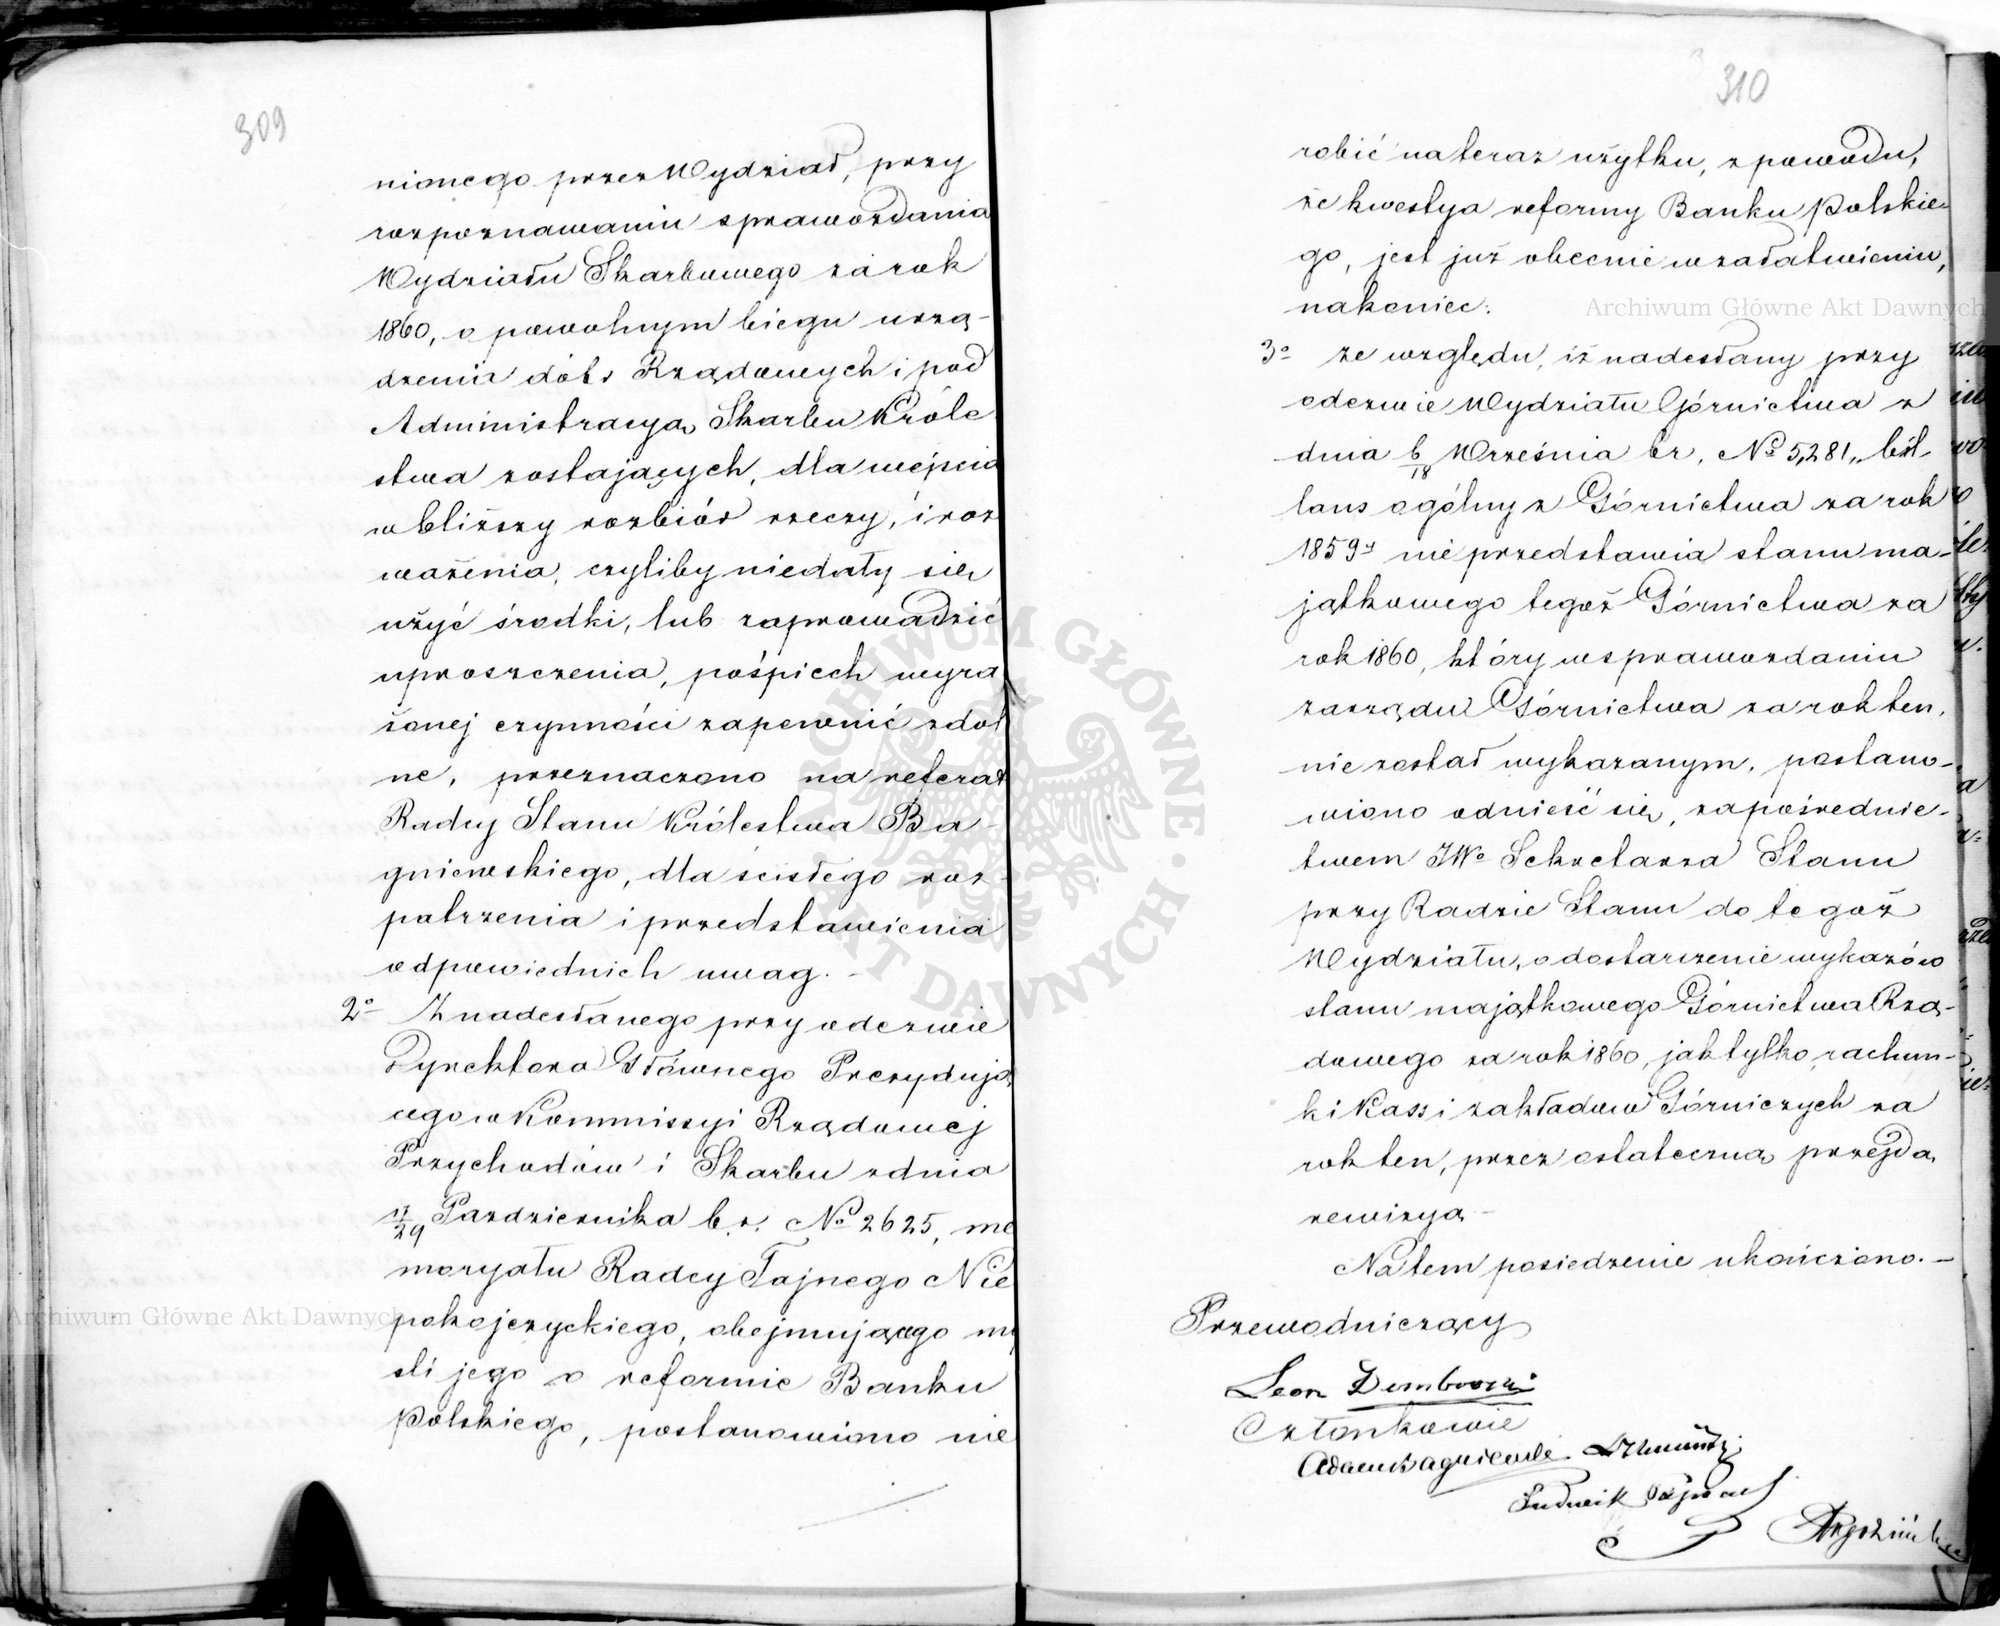 309
nionego przez Wydział, przy
rozpoznawaniu sprawozdania
Wydziału Skarbowego za rok
1860, o powolnym biegu urzą-
dzenia dóbr Rządowych i pod
Administracyą Skarbu Króle
stwa zostających, dla wejścia
w bliższy rozbiór rzeczy, i roz
ważenia, czyliby niedały się
użyć środki, lub zaprowadzić
uproszczenia, pośpiech wyra
żonej czynności zapewnić zdol
ne, przeznaczono na referat
Radcy Stanu Królestwa Ba
gniewskiego, dla ścisłego roz-
patrzenia i przedstawienia
odpowiednich uwag. -
2o Z nadesłanego przy odezwie
Dyrektora Głównego Prezydują
cego w Kommissyi Rządowej
Przychodów i Skarbu z dnia
17/29 Pazdziernika b.r. No 2625, me
moryału Radcy Tajnego Nie
pokojczyckiego, obejmującego my
sli jego o reformie Banku
Polskiego, postanowiono nie
310
robić na teraz użytku, z powodu,
że kwestya reformy Banku Polskie-
go, jest już obecnie w załatwieniu,
nakoniec:
3o ze względu, iż nadesłany przy
odezwie Wydziału Górnictwa z
dnia 6/18 Września br. No 5,281, bil-
lans ogólny z Górnictwa za rok
1859y nie przedstawia stanu ma-
jątkowego tegoż Górnictwa za
rok 1860, który w sprawozdaniu
zarządu Górnictwa za rok ten,
nie został wykazanym, postano-
wiono odnieść się, za pośrednic-
twem JWo Sekretarza Stanu
przy Radzie Stanu do tegoż
Wydziału, o dostarczenie wykazów
stanu majątkowego Górnictwa Rzą-
dowego za rok 1860, jak tylko, rachun-
ki Kass i zakładów Górniczych za
rok ten, przez ostateczną przejdą
rewizyą -
Na tem posiedzenie ukończono. -
Przewodniczący
Leon Dembowski
Członkowie
Adam Bagniewski
Ludwik
Archiwum Główne Akt Dawnych
Archiwum Główne Akt Dawnych
ARCHIWUM GŁÓWNE AKT DAWNYCH